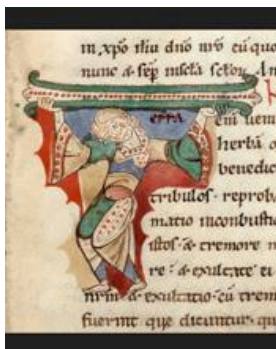 in xp̄o ih̄u dn̄o nr̄o cū quo
nunc & sēp
ERRA
herbā o
benedic
tribulos · reproba
matio inconbustio
istos · & tremore m
re · & exultate ei
nrm̄ · & exultatio · cū trem
fuerint que dicuntur · qu